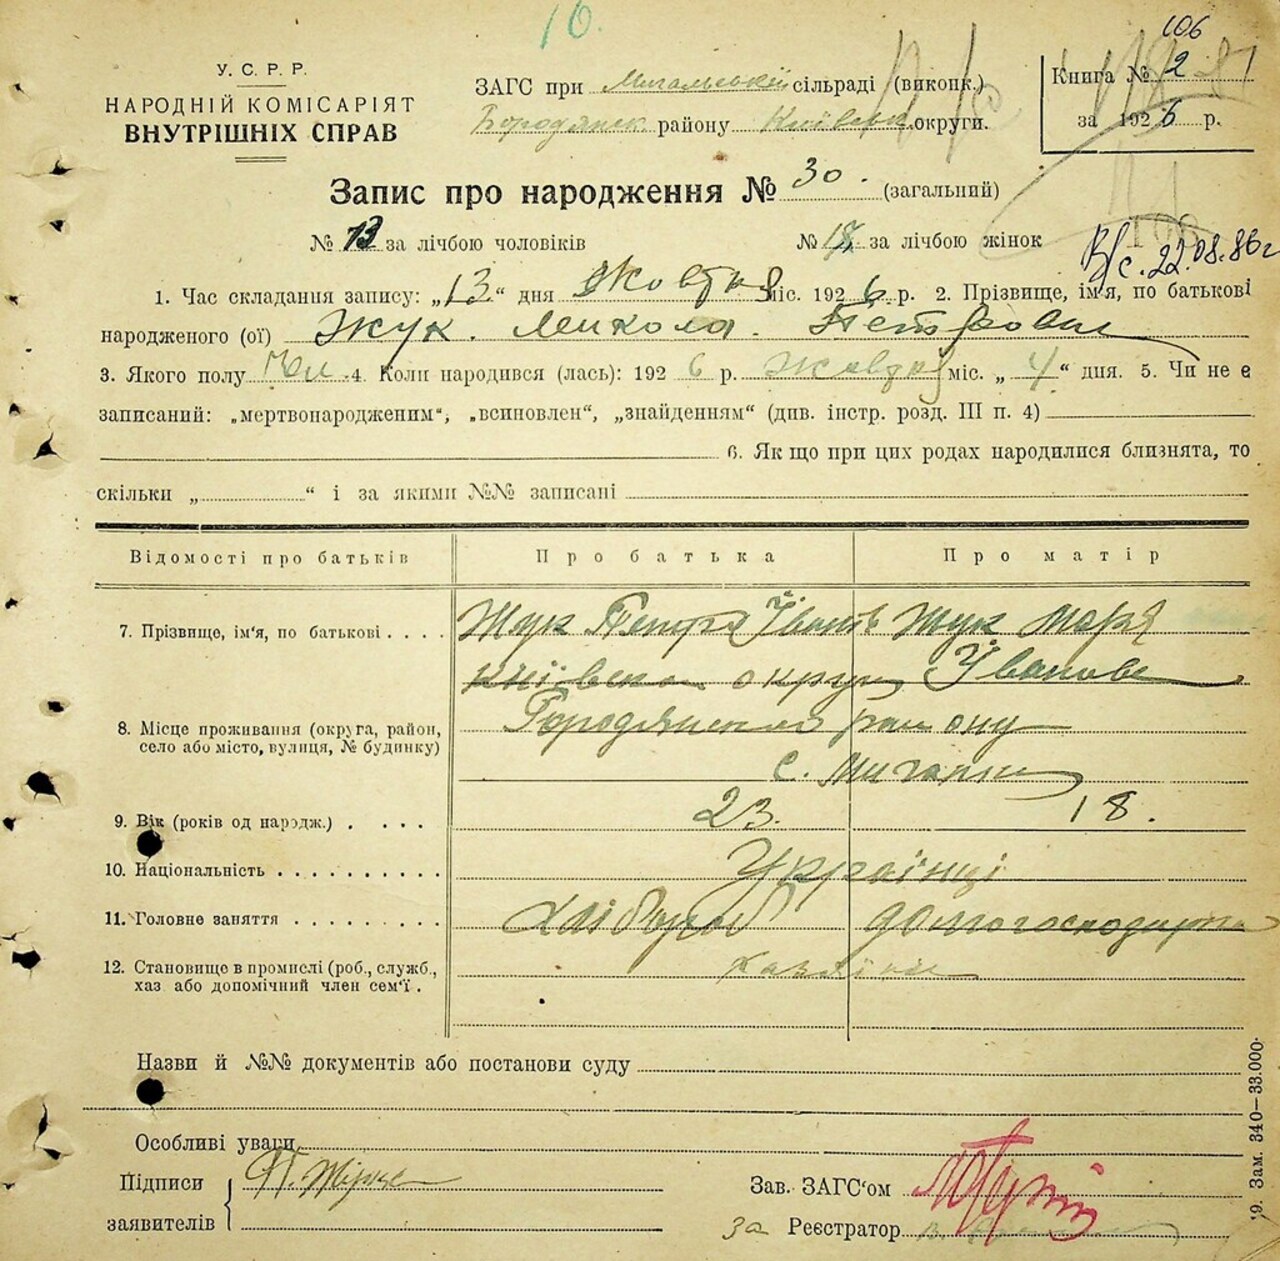 10.
106
У. С. Р. Р.
НАРОДНІЙ КОМІСАРІЯТ
ВНУТРІШНІХ СПРАВ
ЗАГС при Мигальській сільраді (виконк.)
Бородянск району Київськ. округи.
Книга № 2
за 1926 р.
Запис про народження № 30. (загальний)
№ 13 за лічбою чоловіків № за лічбою жінок
В/с. 22.08.86г
1. Час складання запису: „13.“ дня Жовтня міс. 1926 р. 2. Прізвище, ім'я, по батькові
народженого (ої) Жук. Микола. Петрович
3. Якого полу 4. Коли народився (лась): 1926 р. Жовтня міс. „4“ дня. 5. Чи не є
записаний: „мертвонародженим“, „всиновлен“, „знайденням“ (див. інстр. розд. III п. 4)
6. Якщо при цих родах народилися близнята, то
скільки „ “ і за якими №№ записані
Відомості про батьків Про батька Про матір
7. Прізвище, ім'я, по батькові . . . . Жук Петро Іванів Жук Марʼя
київска округ Іванове
8. Місце проживання (округа, район,
село або місто, вулиця, № будинку)
Бородянського району
с. Мигалки
9. Вік (років од народж.) . . . . 23. 18.
10. Національність . . . . . . . . . . Українці
11. Головне заняття . . . . . . . . . Хлібороб домогосподарка
12. Становище в промислі (роб., служб.,
хаз або допомічний член сем'ї .
Назви й №№ документів або постанови суду
Особливі уваги
Підписи
заявителів
Зав. ЗАГС'ом
За Реєстратор
19. Зам. 340—33.000.